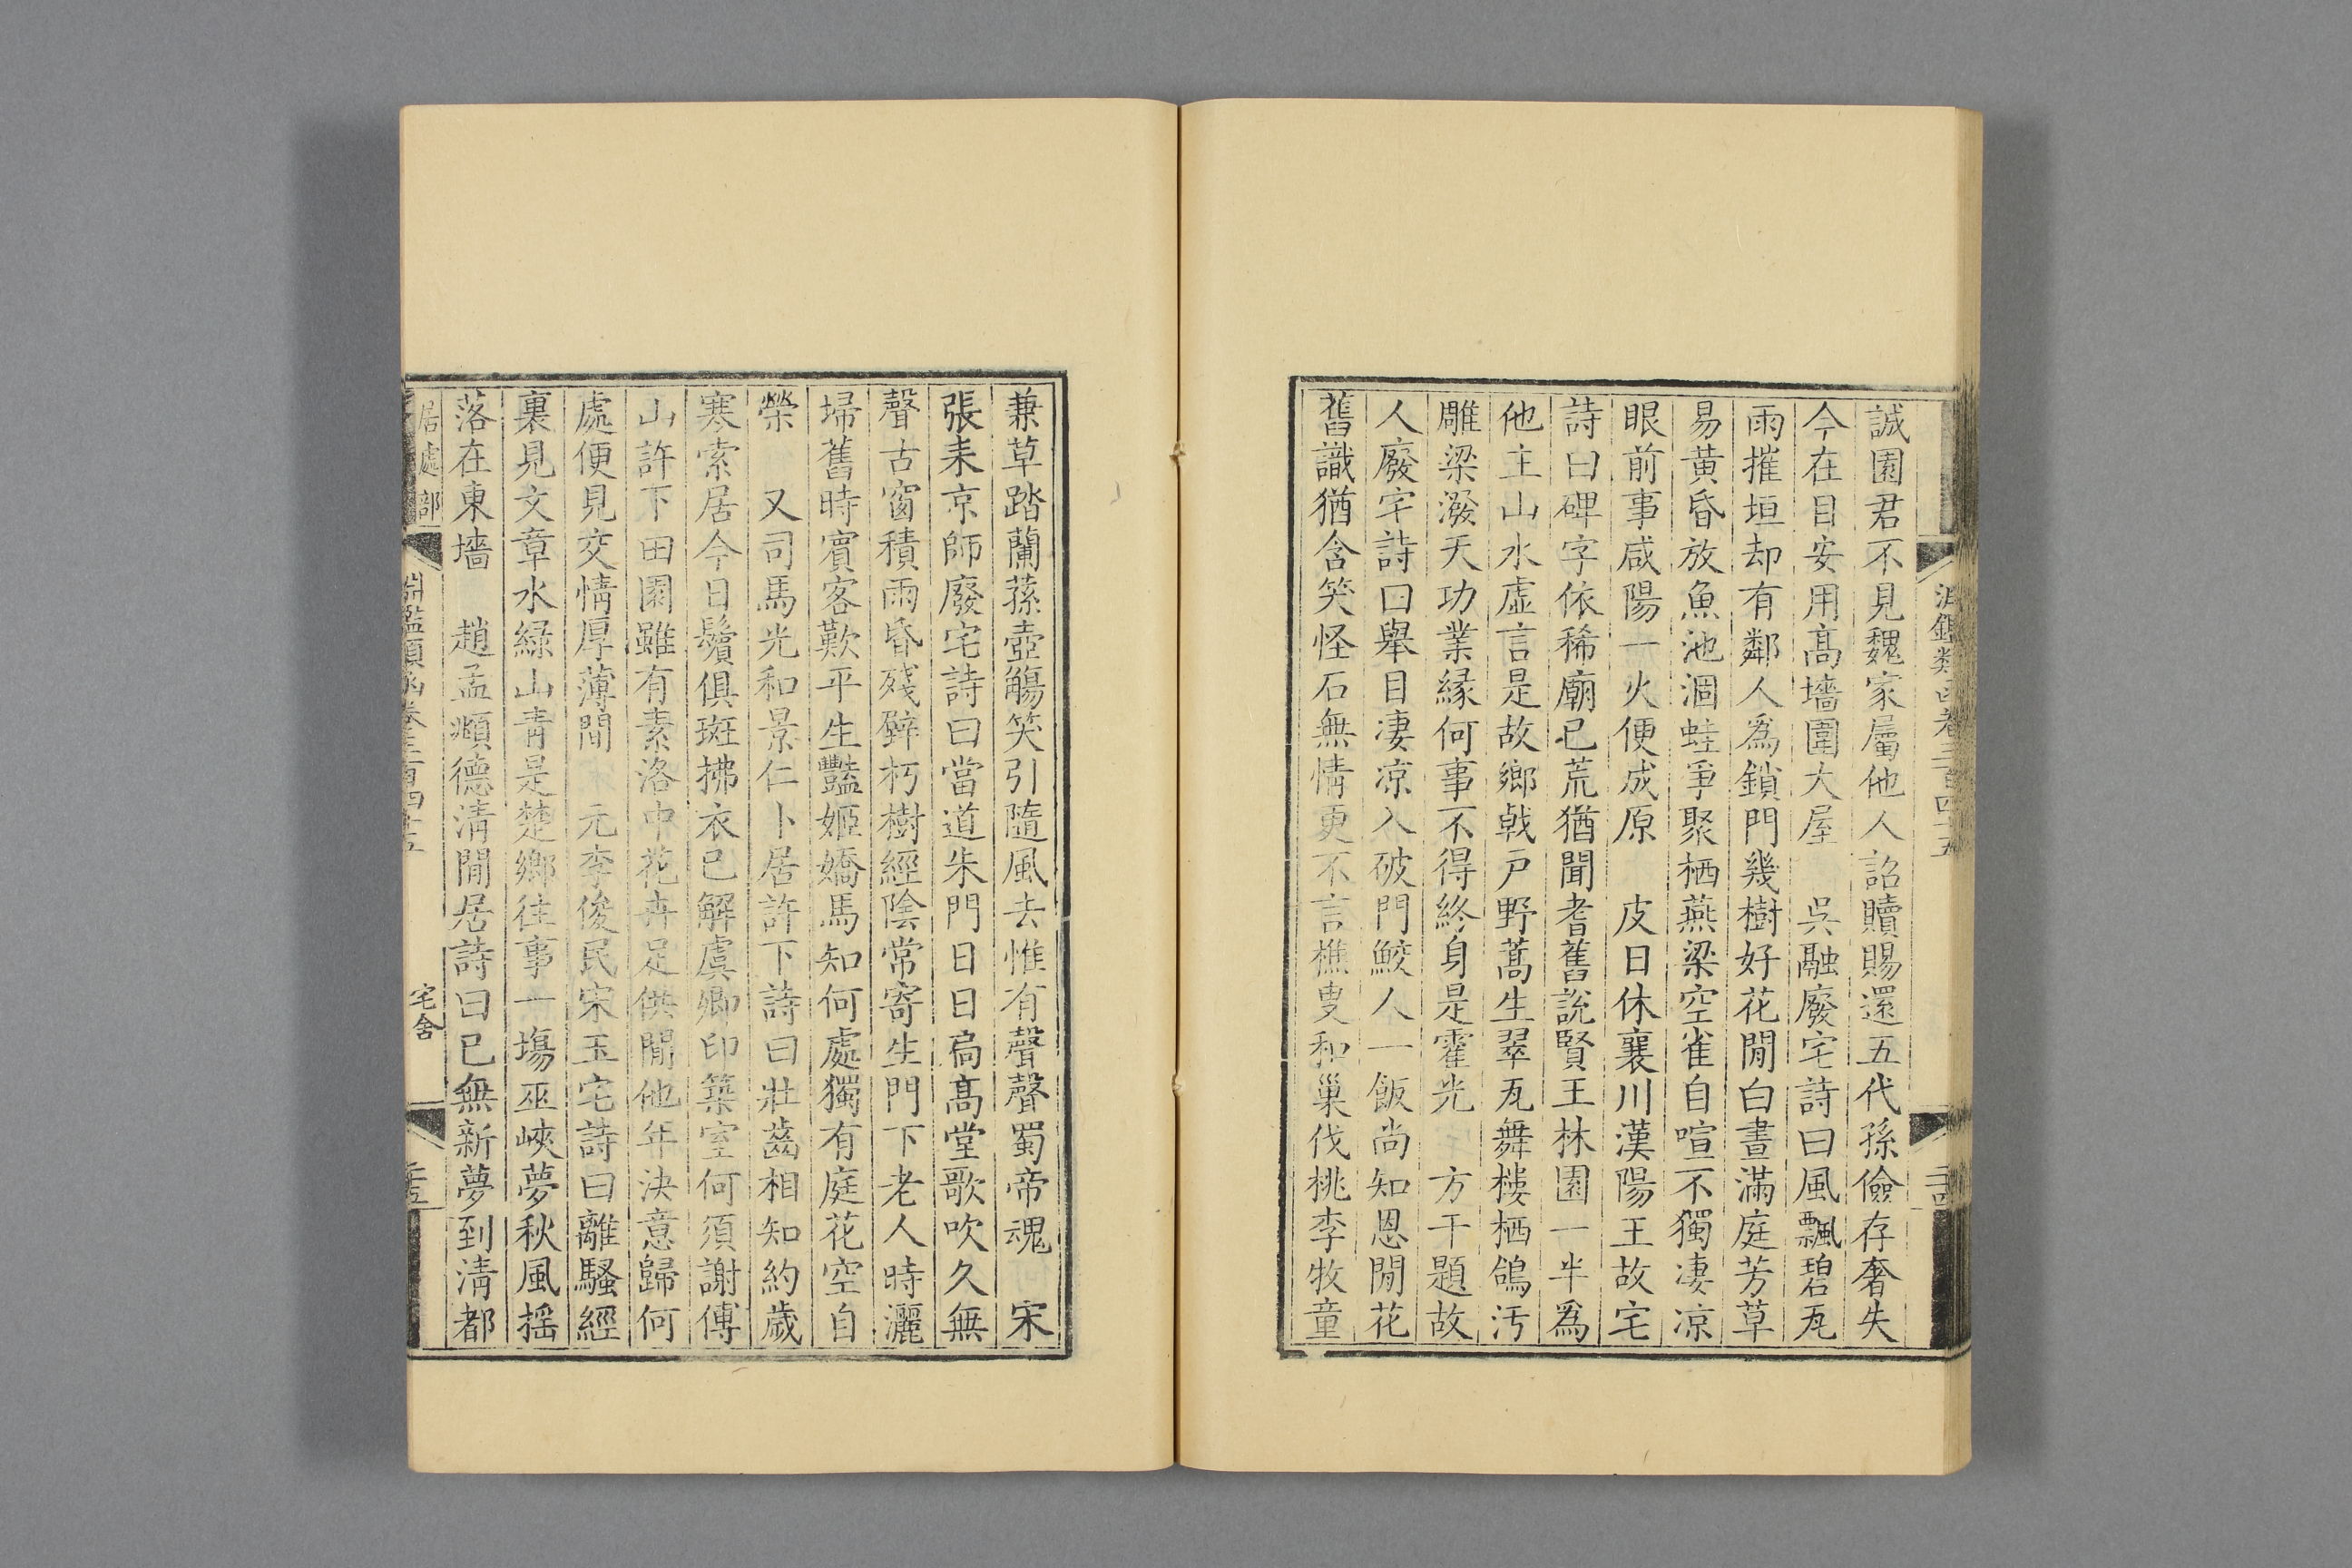 誠園君不見魏家屬他人詔贖賜還五代孫儉存奢失
今在目安用高墻圍大屋　吳融廢宅詩曰風飄碧瓦
雨摧垣却有鄰人爲鎖門幾樹好花閒白晝滿庭芳草
易黃昏放魚池涸蛙爭聚栖燕梁空雀自喧不獨凄凉
眼前事咸陽一火便成原　皮日休襄川漢陽王故宅
詩曰碑字依稀廟已荒猶聞耆舊說賢王林園一半爲
他主山水虛言是故鄉戟戶野蒿生翠瓦舞樓栖鴿汚
雕梁潑天功業緣何事不得終身是霍光　方干題故
人廢宅詩曰舉目凄凉入破門鮫人一飯尚知恩閒花
舊識猶含笑怪石無情更不言樵叟和巢伐桃李牧童
兼草踏蘭蓀壺觴笑引隨風去惟有聲聲蜀帝魂　宋
張耒京師廢宅詩曰當道朱門日日扃高堂歌吹久無
聲古窗積雨昏殘壁朽樹經陰常寄生門下老人時灑
埽舊時賓客歎平生豔姬嬌馬知何處獨有庭花空自
榮　又司馬光和景仁卜居許下詩曰壯齒相知約歲
寒索居今日鬢俱斑拂衣已解虞卿印築室何須謝傅
山許下田園雖有素洛中花卉足供閒他年決意歸何
處便見交情厚薄間　元李俊民宋玉宅詩曰離騷經
裏見文章水綠山靑是楚鄉往事一塲巫峽夢秋風搖
落在東墻　趙孟頫德淸閒居詩曰已無新夢到淸都
居處部
淵鑑類函卷三百四十五
宅舍
二十五